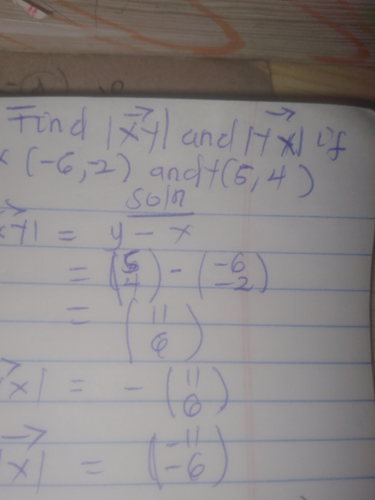 Find |XY| and |YX| if
X (-6,-2) and Y(5,4)
Soln
XY| = y - x
= (5 4) - (-6 -2)
= (11 6)
X| = - (11 6)
X| = (-11 -6)